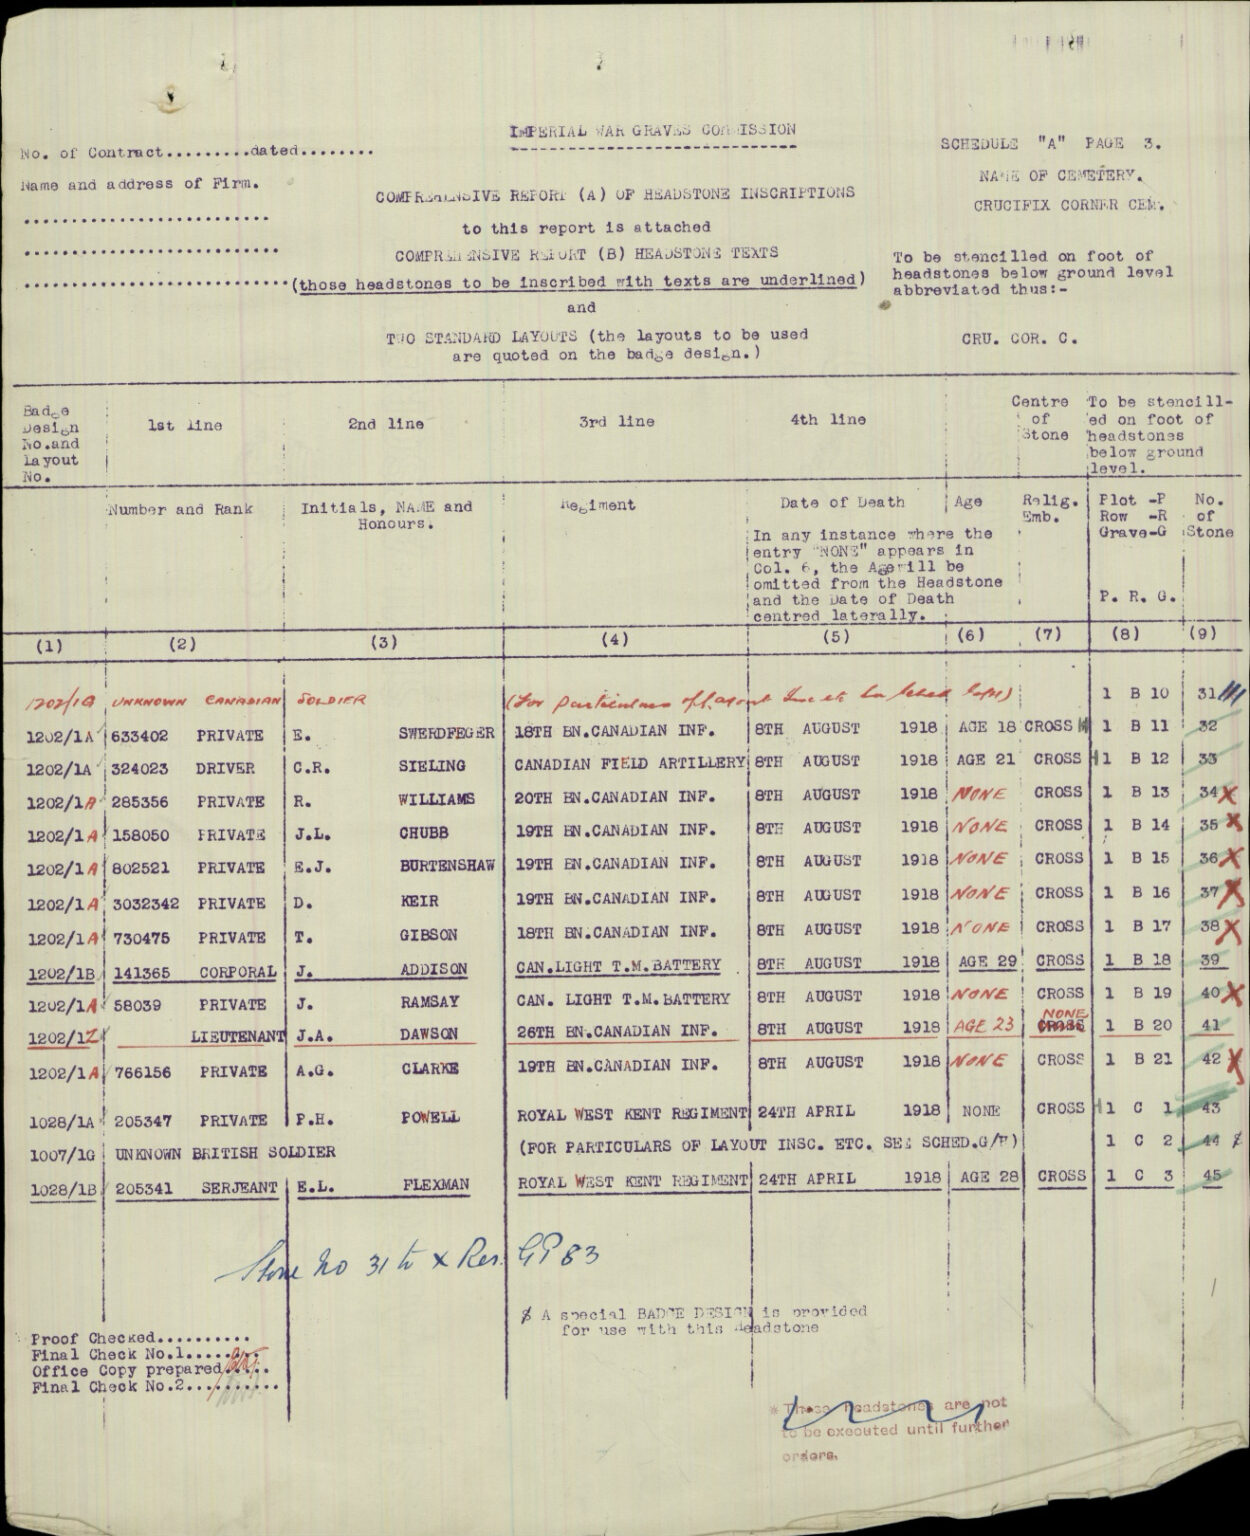 IMPERIAL WAR GRAVES COMMISSION
No. of Contract.........dated........
SCHEDULE "A" PAGE 3.
Name and address of Firm.
NAME OF CEMETERY.
COMPREHENSIVE REPORT (A) OF HEADSTONE INSCRIPTIONS
CRUCIFIX CORNER CEM.
to this report is attached
COMPREHENSIVE REPORT (B) HEADSTONE TEXTS
(those headstones to be inscribed with texts are underlined)
and
TWO STANDARD LAYOUTS (the layouts to be used
are quoted on the badge design.)
To be stencilled on foot of
headstones below ground level
abbreviated thus:-
CRU. COR. C.
Badge Design No.and Layout No.
1st line
2nd line
3rd line
4th line
Centre of Stone
To be stencill-
ed on foot of
headstones
below ground
level.
Number and Rank
Initials, NAME and
Honours.
Regiment
Date of Death
In any instance where the
entry "NONE" appears in
Col. 6, the Age will be
omitted from the Headstone
and the Date of Death
centred laterally.
Age
Relig. Emb.
Plot -P
Row -R
Grave-G
P. R. G.
No. of Stone
(1) (2) (3) (4) (5) (6) (7) (8) (9)
1202/1G UNKNOWN CANADIAN SOLDIER (For particulars of layout Insc etc 1 B 10 31
1202/1A 633402 PRIVATE E. SWERDFEGER 18TH BN.CANADIAN INF. 8TH AUGUST 1918 AGE 18 CROSS 1 B 11 32
1202/1A 324023 DRIVER C.R. SIELING CANADIAN FIELD ARTILLERY 8TH AUGUST 1918 AGE 21 CROSS 1 B 12 33
1202/1A 285356 PRIVATE R. WILLIAMS 20TH BN.CANADIAN INF. 8TH AUGUST 1918 NONE CROSS 1 B 13 34 X
1202/1A 158050 PRIVATE J.L. CHUBB 19TH BN.CANADIAN INF. 8TH AUGUST 1918 NONE CROSS 1 B 14 35 X
1202/1A 802521 PRIVATE E.J. BURTENSHAW 19TH BN.CANADIAN INF. 8TH AUGUST 1918 NONE CROSS 1 B 15 36 X
1202/1A 3032342 PRIVATE D. KEIR 19TH BN.CANADIAN INF. 8TH AUGUST 1918 NONE CROSS 1 B 16 37 X
1202/1A 730475 PRIVATE T. GIBSON 18TH BN.CANADIAN INF. 8TH AUGUST 1918 NONE CROSS 1 B 17 38 X
1202/1B 141365 CORPORAL J. ADDISON CAN.LIGHT T.M.BATTERY 8TH AUGUST 1918 AGE 29 CROSS 1 B 18 39
1202/1A 58039 PRIVATE J. RAMSAY CAN. LIGHT T.M.BATTERY 8TH AUGUST 1918 NONE CROSS 1 B 19 40 X
1202/1Z LIEUTENANT J.A. DAWSON 26TH BN.CANADIAN INF. 8TH AUGUST 1918 AGE 23 NONE CROSS 1 B 20 41
1202/1A 766156 PRIVATE A.G. CLARKE 19TH BN.CANADIAN INF. 8TH AUGUST 1918 NONE CROSS 1 B 21 42 X
1028/1A 205347 PRIVATE P.H. POWELL ROYAL WEST KENT REGIMENT 24TH APRIL 1918 NONE CROSS 1 C 1 43
1007/1G UNKNOWN BRITISH SOLDIER (FOR PARTICULARS OF LAYOUT INSC. ETC. SEE SCHED.G/F) 1 C 2 44
1028/1B 205341 SERJEANT E.L. FLEXMAN ROYAL WEST KENT REGIMENT 24TH APRIL 1918 AGE 28 CROSS 1 C 3 45
Stone No 31 to x Res. GP 83
A special BADGE DESIGN is provided
for use with this Headstone
Proof Checked..........
Final Check No.1........
Office Copy prepared.....
Final Check No.2..........
* These headstones are not
to be executed until further
orders.